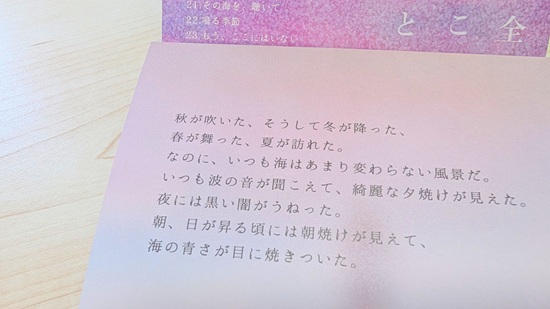 21.その海を、聴いて
22.鳴る季節
23.もう、ここにはいない
全
こ
と
秋が吹いた、そうして冬が降った、
春が舞った、夏が訪れた。
なのに、いつも海はあまり変わらない風景だ。
いつも波の音が聞こえて、綺麗な夕焼けが見えた。
夜には黒い闇がうねった。
朝、日が昇る頃には朝焼けが見えて、
海の青さが目に焼きついた。